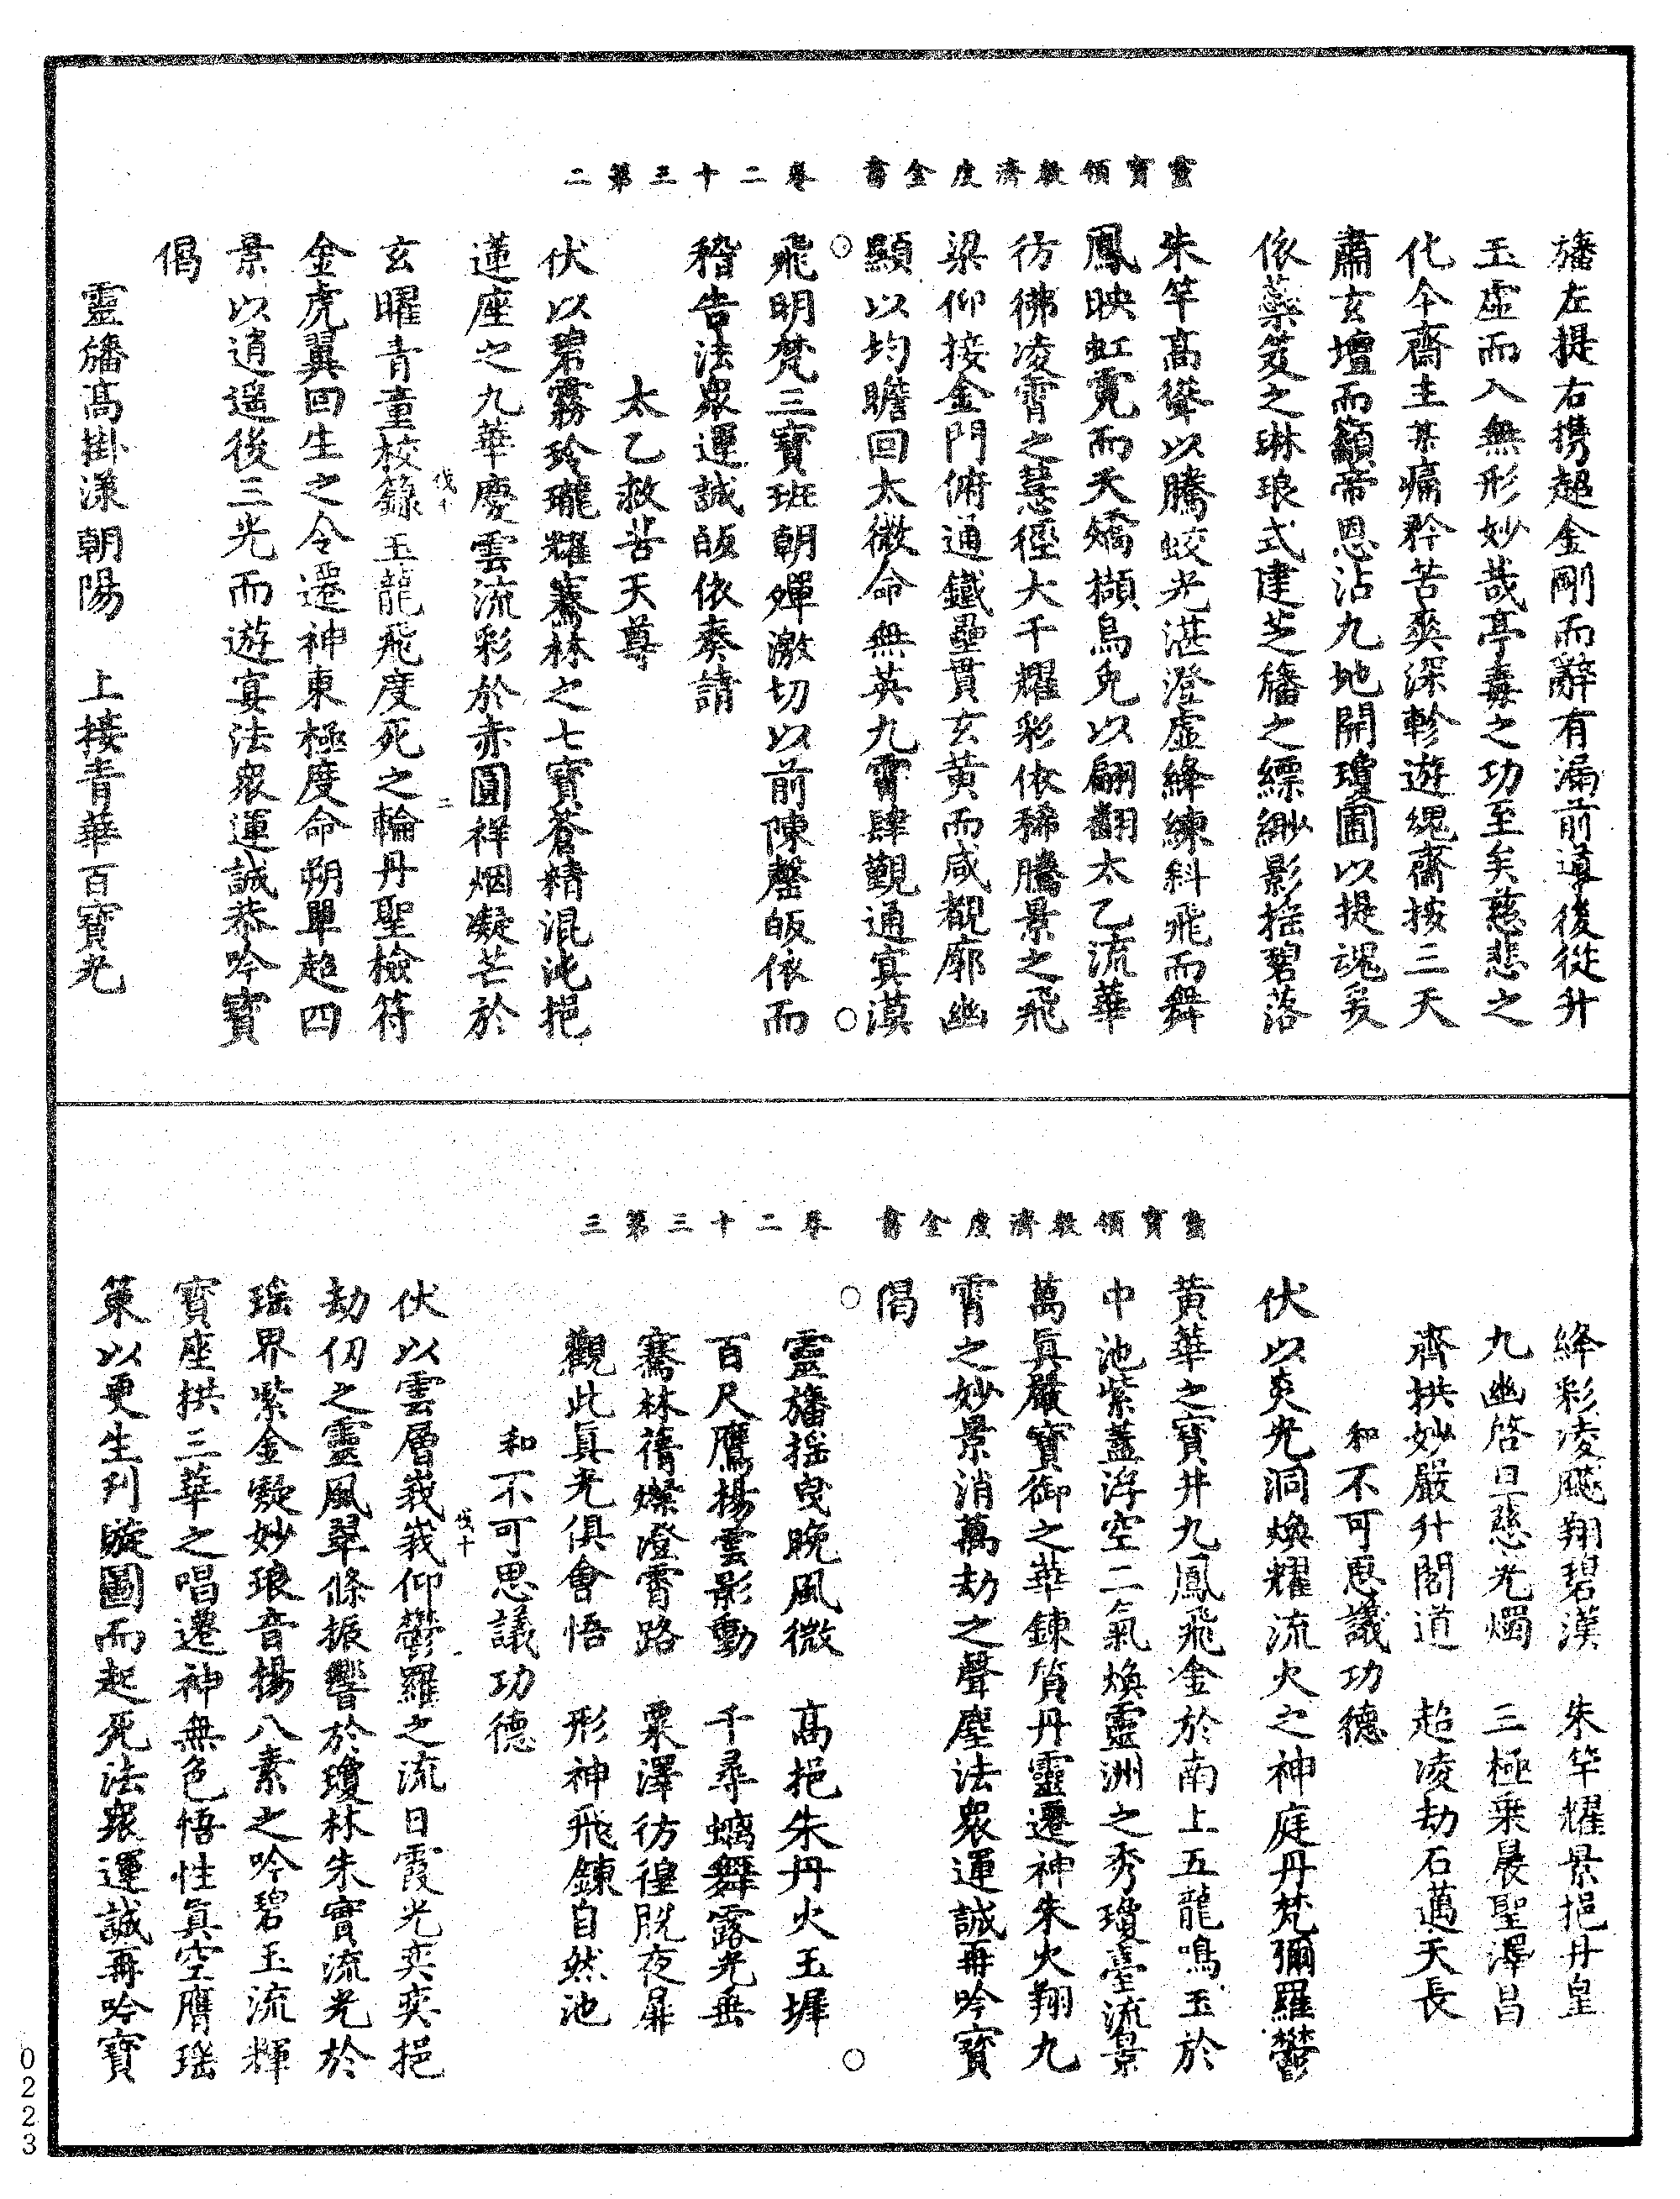 靈寶領教濟度金書　卷二十三第二
旛左提右携超金剛而辭有漏前導後從升
玉虛而入無形妙哉亭毒之功至矣慈悲之
化今齋主某痛矜苦爽深軫遊魂齋按三天
肅玄壇而籲帝恩沾九地開瓊圃以提魂爰
依蘂笈之琳琅式建芝旛之縹緲影揺碧落
朱竿高聳以騰蛟光湛澄虛絳練斜飛而舞
鳳映虹霓而夭矯擷烏兔以翩翻太乙流華
彷彿凌霄之慧徑大千耀彩依稀騰景之飛
梁仰接金門俯通鐵壘貫玄黄而咸覩廓幽
顯以均瞻回太微命無英九霄肆覲通寞漠
飛明梵三寶班朝殫激切以前陳罄皈依而
稽告法衆運誠皈依奏請
太乙救苦天尊
伏以碧霧玲瓏耀騫林之七寶蒼精混沌挹
蓮座之九華慶雲流彩於赤圓祥烟凝芒於
玄曜青童校籙玉龍飛度死之輪丹聖檢符
金虎翼回生之令遷神東極度命朔單超四
景以逍遥後三光而遊宴法衆運誠恭吟寶
偈
靈旛高掛漾朝陽　上接青華百寶光
靈寶領教濟度金書　卷二十三第三
絳彩凌飈翔碧漢　朱竿耀景挹丹皇
九幽啓旦慈光燭　三極乘晨聖澤昌
齊拱妙嚴升閣道　超凌劫石邁天長
和不可思議功德
伏以炎光洞煥耀流火之神庭丹梵彌羅鬱
黄華之寶井九鳳飛金於南上五龍鳴玉於
中池紫蓋浮空二氣煥靈洲之秀瓊臺流景
萬真嚴寶御之華鍊質丹靈遷神朱火翔九
霄之妙景消萬劫之聲塵法衆運誠再吟寶
偈
靈旛揺曳晩風微　高挹朱丹火玉墀
百尺鷹揚雲影動　千尋螭舞露光垂
騫林蒨燦澄霄路　粟澤彷徨脱夜扉
觀此真光俱會悟　形神飛鍊自然池
和不可思議功德
伏以雲層峩峩仰鬱羅之流日霞光奕奕挹
劫仞之靈風翠條振響於瓊林朱實流光於
瑶界紫金凝妙琅音揚八素之吟碧玉流輝
寶座拱三華之唱遷神無色悟性真空膺瑶
策以更生列璇圖而起死法衆運誠再吟寶
0223